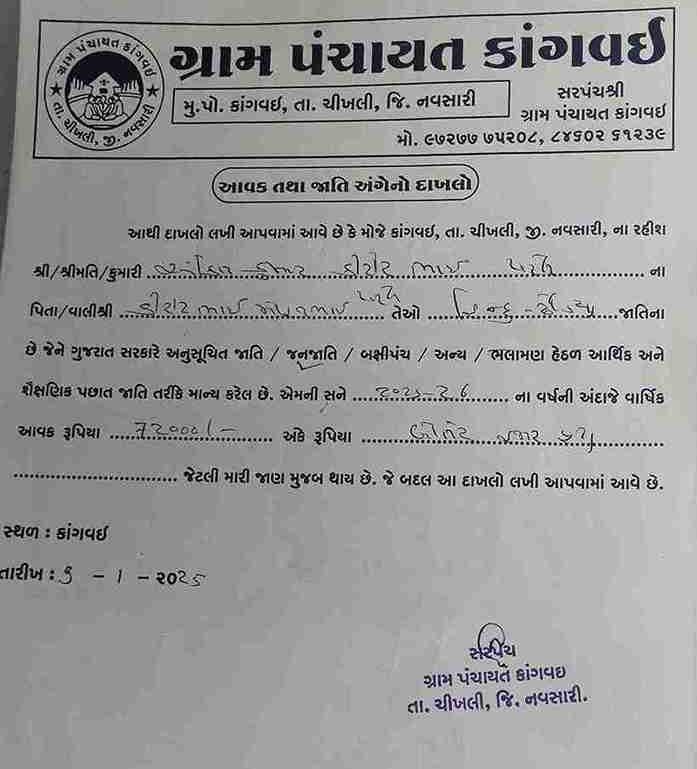 ગ્રામ પંચાયત કાંગવઈ
ગ્રામ પંચાયત કાંગવઈ
તા. ચીખલી, જી. નવસારી
મુ.પો. કાંગવઈ, તા. ચીખલી, જિ. નવસારી
સરપંચશ્રી
ગ્રામ પંચાયત કાંગવઈ
મો. ૯૭૨૭૭ ૭૫૨૦૮, ૮૪૬૦૨ ૬૧૨૩૯
આવક તથા જાતિ અંગેનો દાખલો
આથી દાખલો લખી આપવામાં આવે છે કે મોજે કાંગવઈ, તા. ચીખલી, જી. નવસારી, ના રહીશ
શ્રી/શ્રીમતિ/કુમારી ના
પિતા/વાલીશ્રી તેઓ હિન્દુ - જાતિના
છે જેને ગુજરાત સરકારે અનુસૂચિત જાતિ / જનજાતિ / બક્ષીપંચ / અન્ય / ભલામણ હેઠળ આર્થિક અને
શૈક્ષણિક પછાત જાતિ તરીકે માન્ય કરેલ છે. એમની સને ના વર્ષની અંદાજે વાર્ષિક
આવક રૂપિયા 72000/- અંકે રૂપિયા
જેટલી મારી જાણ મુજબ થાય છે. જે બદલ આ દાખલો લખી આપવામાં આવે છે.
સ્થળ : કાંગવઈ
તારીખ : - 1 - ૨૦25
સરપંચ
ગ્રામ પંચાયત કાંગવઇ
તા. ચીખલી, જિ. નવસારી.